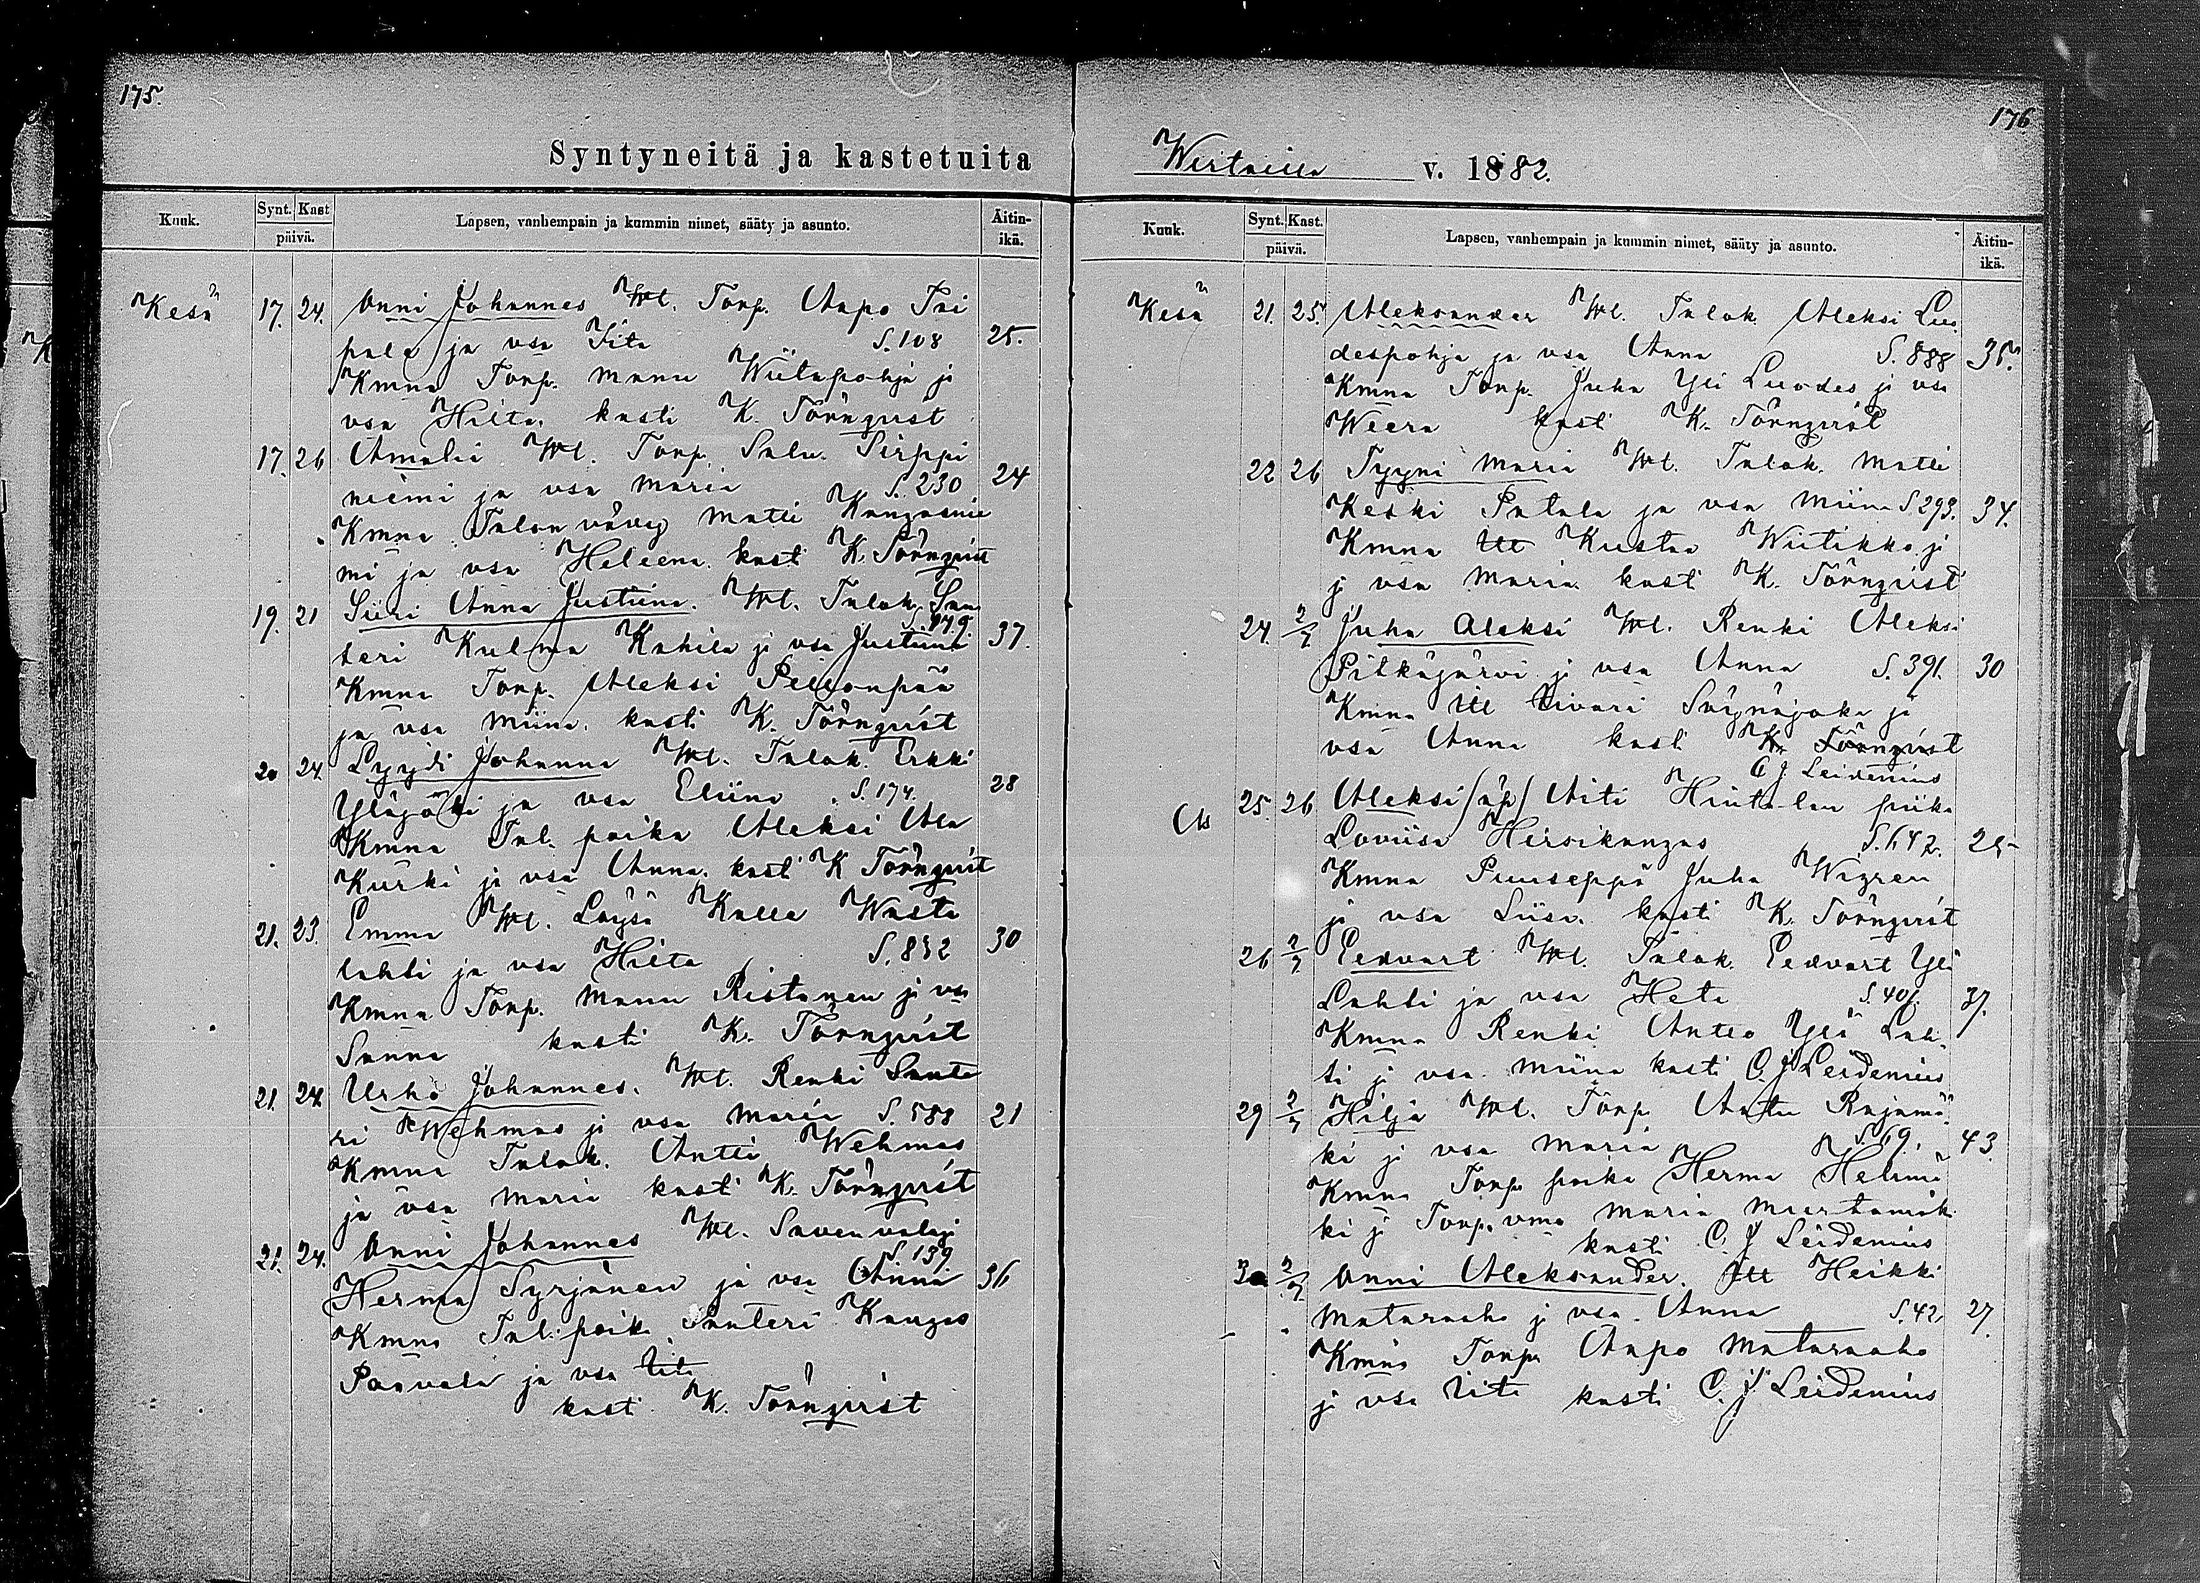 175.
Syntyneitä ja kastetuita
Kuuk.
Synt. Kast
päivä.
Lapsen, vanhempain ja kummin nimet, sääty ja asunto.
Äitin-
ikä.
Kesä 17. 24. Onni Johannes Vl. Torp. Aapo Tai
pale ja vsa Iita S. 108 25.
Kmna Torp. Manu Wiitapohja ja
vsa Hilta. kasti K. Törnqvist
17. 26 Amalia Vl. Torp. Salu. Sirppi
niemi ja vsa Maria S. 230 24
Kmna Talon vävy Matti Kangasnie
mi ja vsa Heleena. kast K. Törnqvist
19. 21 Siiri Anna Justiina. Vl. Talok. San
S. 179.
teri Kulma Kahila ja vsa Justiina 37.
Kmna Torp. Aleksi Peltonpää
ja vsa Miina. kasti K. Törnqvist
20 24. Lyydi Johanna Vl. Talok. Erkki
Yläjoki ja vsa Eliina S. 174. 28
Kmna Tal. poika Aleksi Ala
Kurki ja vsa Anna. kast K Törnqvist
21. 23. Emma Vl. Loysä Kalle Wasta
lahti ja vsa Hilta S. 832 30
Kmna Torp. Manu Ristanen ja vsa
Sanna kasti K. Törnqvist
21. 24. Urho Johannes. Vl. Renki Sante
ri Wehmas ja vsa Maria S. 588 21
Kmna Talok. Antti Wehmas
ja vsa Maria kast K. Törnqvist
21. 24. Onni Johannes Vl. Savenvalaj
S. 139
Herma Syrjänen ja vsa Anna 36
Kmna Tal. poika Santeri Kangas
Paavola ja vsa Iita
kast K. Törnqvist
176
Wirtailla v. 1882.
Kuuk.
Synt. Kast.
päivä.
Lapsen, vanhempain ja kummin nimet, sääty ja asunto.
Äitin-
ikä.
Kesä 21. 25. Aleksander Vl. Talok. Aleksi Luo
despohja ja vsa Anna S. 888 35.
Kmna Torp. Juha Yli Luodes ja vsa
Weera kast K. Törnqvist
22 26 Tyyni Maria Vl. Talok. Matti
Keski Patala ja vsa Miina S 293. 34.
Kmna Itl Kustaa Wiitikko ja
j vsa Maria kast K. Törnqvist
24. 2/7 Juha Aleksi Vl. Renki Aleksi
Pitkäjärvi ja vsa Anna S. 391. 30
Kmna Itl Iivari Säynäjoka ja
vsa Anna kast K. Törnqvist
C J Leidenius
Au 25. 26 Aleksi /äp/ Äiti Hinta-lan piika
Loviisa Hirsikangas S. 642. 25
Kmna Puuseppä Juha Wigren
ja vsa Liisa. kasti K. Törnqvist
26 2/7 Eedvart Vl. Talok. Eedvart Yli
Lahti ja vsa Heta S. 401. 37.
Kmna Renki Anteo Yli Lah
ti ja vsa Miina kasti C. J Leidenius
29 2/7 Hilja Vl. Torp. Antu Rajamä
ki ja vsa Maria S. 69. 43
Kmna Torp poika Herma Helimä
ki ja Torp. vmo Maria Mustamäk
kasti C. J Leidenius
30 2/7 Onni Aleksander. Itl Heikki
Mataraaho j vsa Anna S. 42 27.
Kmna Torp. Aapo Mataraaho
ja vsa Iita kasti C. J Leidenius